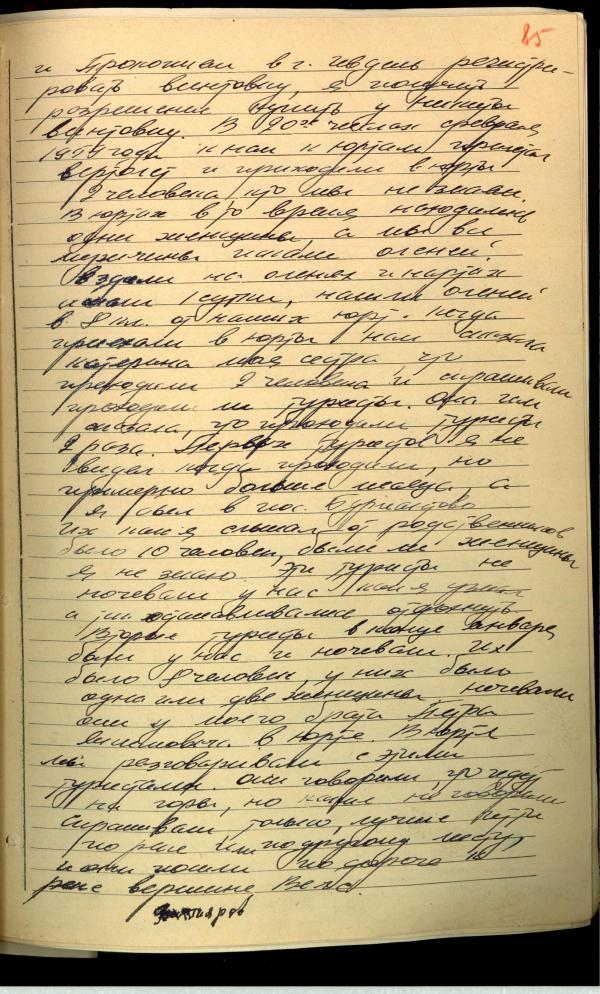 85
и Прокопием в г. Ивдель регистри-
ровать винтовку, я получить
разрешения купить у Никиты
винтовку. В 20х числах февраля
1959 года к нам к юртам прилетал
вертолет и приходили в юрты
2 человека, кто мы не знали.
В юртах в то время находились
одни женщины, а мы все
мужчины искали оленей.
Ездили на оленях и нартах
искали 1 сутки, нашли оленей
в 8 км. от наших юрт. Когда
приехали в юрты нам сказала
катерина моя сестра, что
приходили 2 человека и спрашивали
проходили ли туристы. Она им
сказала, что проходили туристы
2 раза. Первых туристов я не
видел когда проходили, но
примерно больше месяца, а
я был в пос. Бурмантово
Их как я слышал от родственников
было 10 человек, были ли женщины
я не знаю. Эти туристы не
ночевали у нас как я узнал
а так останавливались отдохнуть
Вторые туристы в конце января
были у нас и ночевали. Их
было 8 человек, у них было
одна или две женщины. ночевали
они у моего брата Петра
Якимовича в юрте. В юрте
мы разговаривали с этими
туристами. Они говорили, что идут
на горы, но какие не говорили
спрашивали только, лучше идти
по реке или по другому месту
и они пошли по дороге к
реке вершине Вежа.